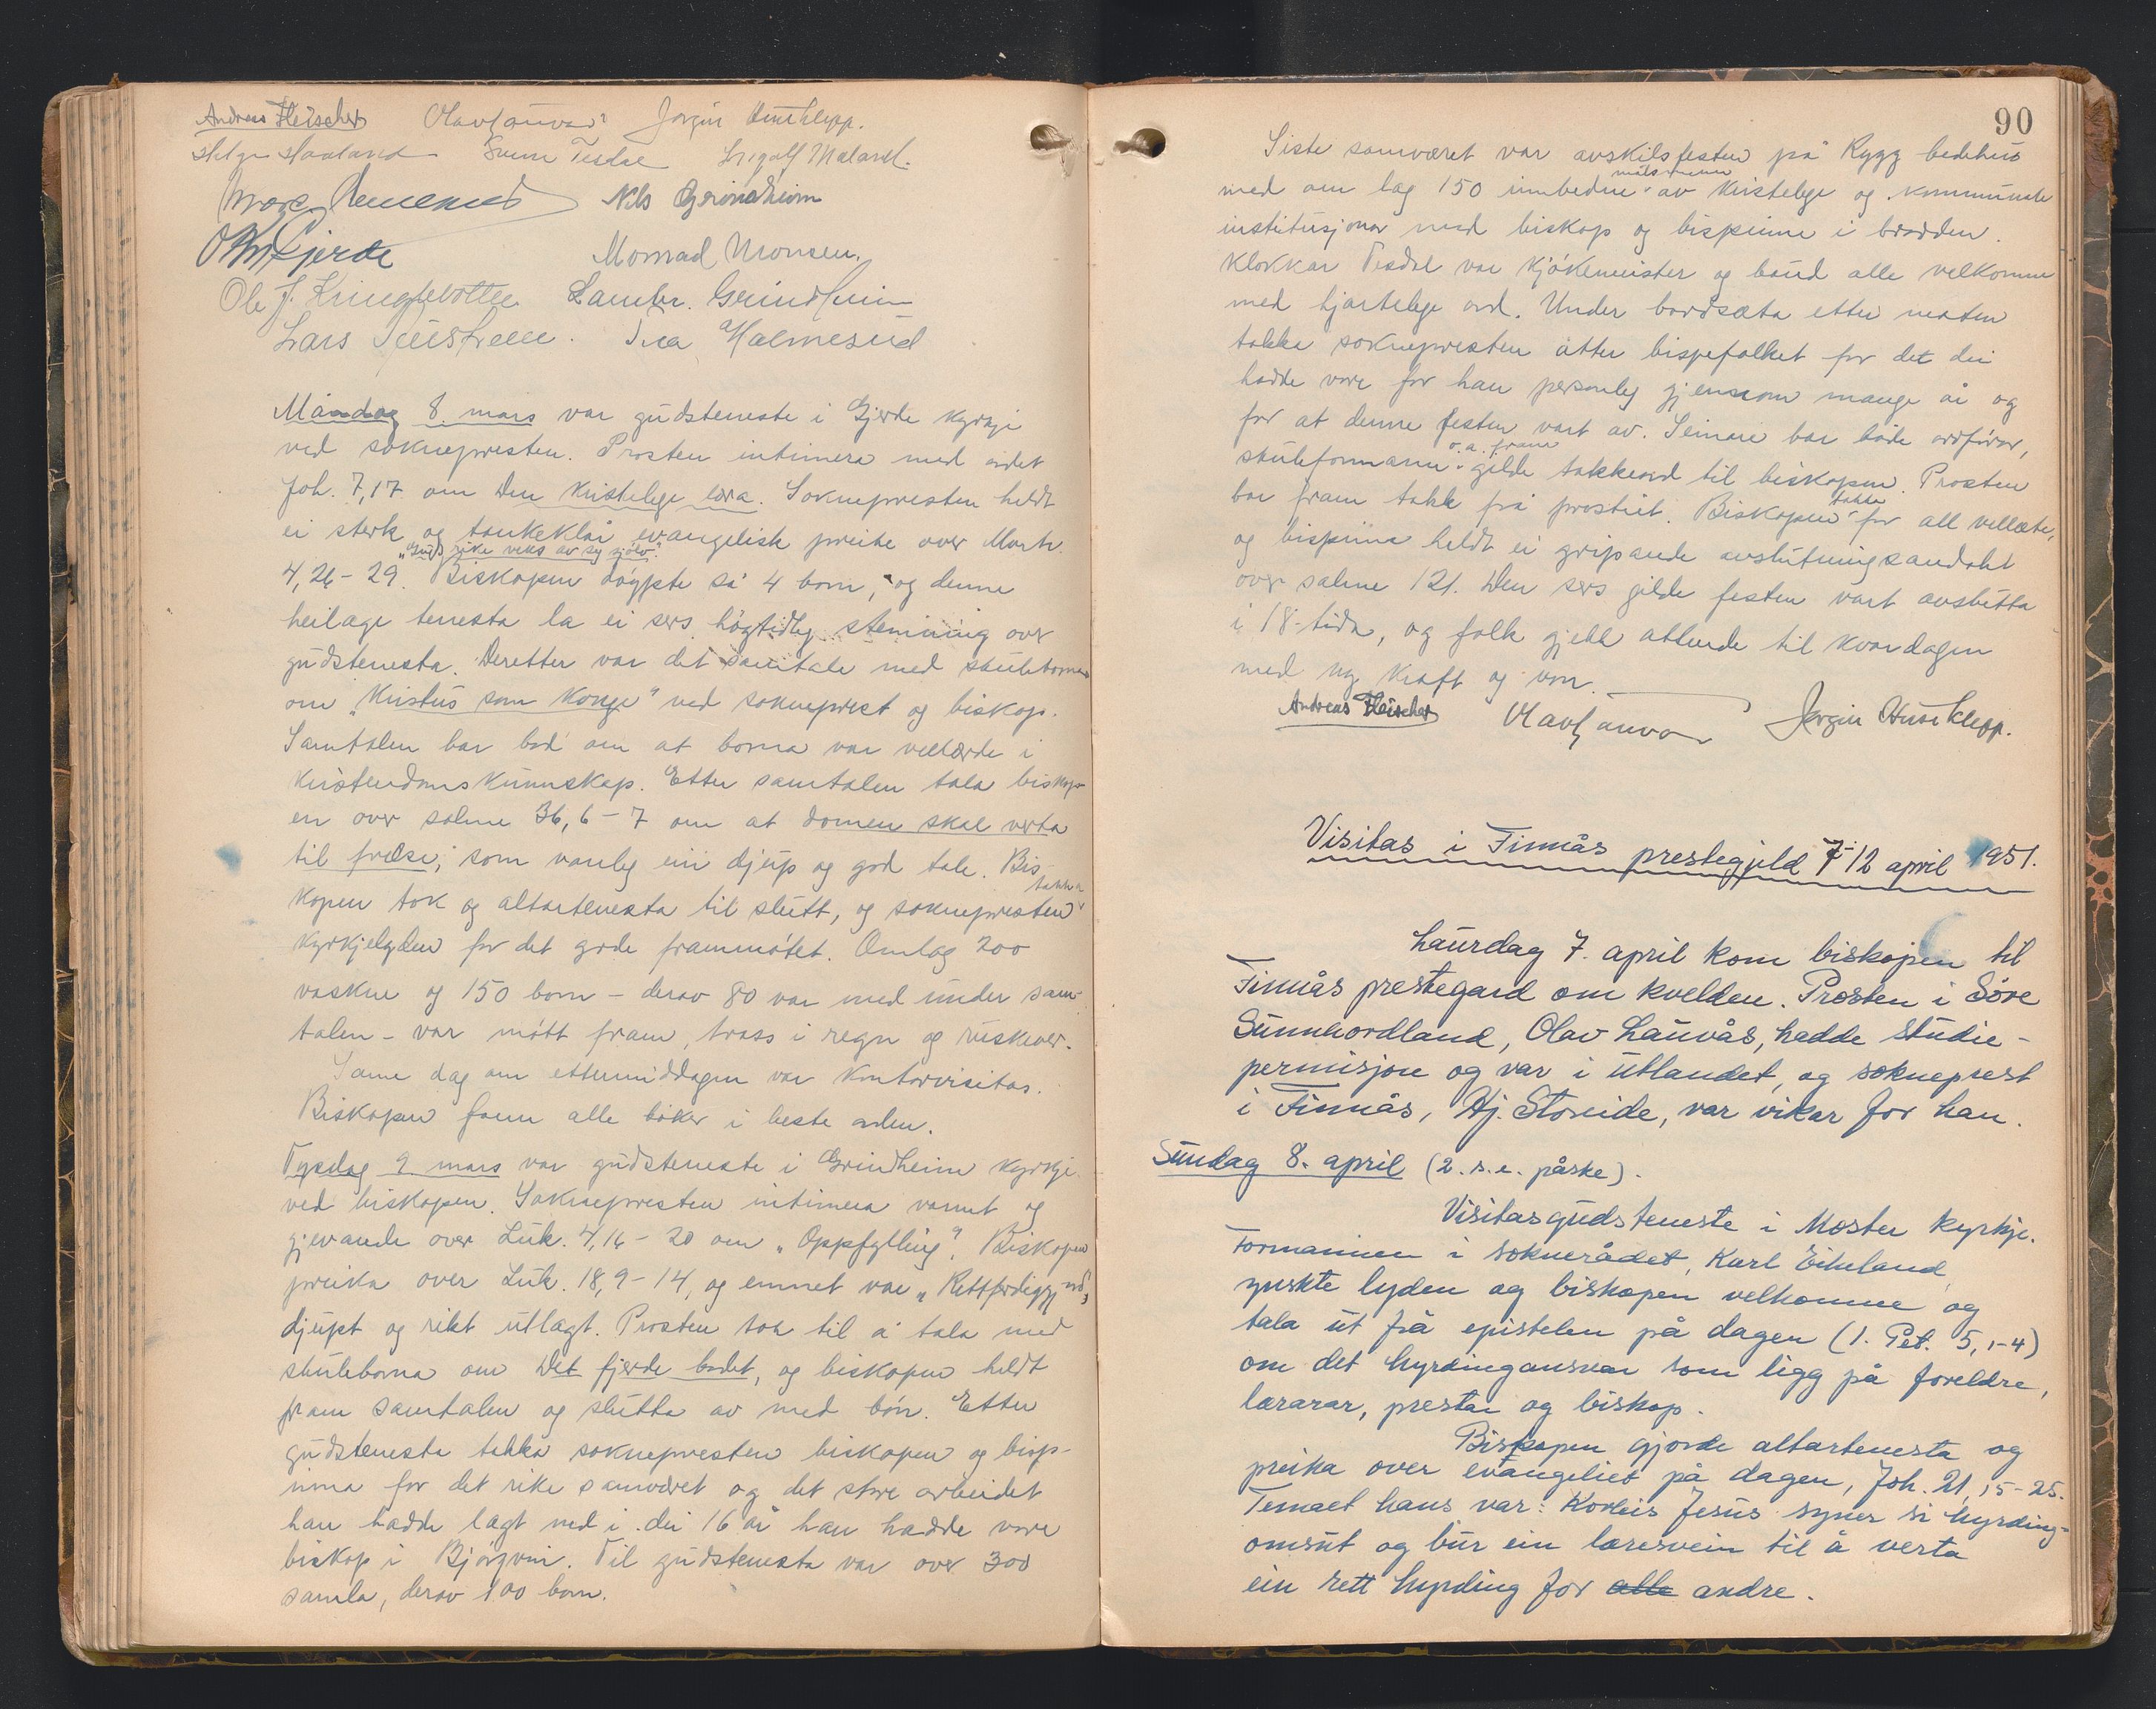 Andreas Fleischer Olav Lauvås Jørgin Huseklepp.
Helge Haaland Svein Tesdal Ingolf Mæland.
Nils Grindheim
O Gjerde Monrad Monsen.
Ole J. Kringlebotten Lambr. Grindheim
Lars Tueistveen. Ivar Halmesud
Måndag 8. mars var gudsteneste i Gjerde kyrkje
ved soknepresten. Prosten intimera med ordet
Joh. 7,17 om den kristelege læra. Soknepresten heldt
ei sterk og tankeklår evangelisk preike over Mark.
"Guds rike veks av seg sjølv."
4,26-29. Biskopen døypte så 4 born, og denne
heilage tenesta la ei sers høgtidleg stemning over
gudstenesta. Deretter var det samtale med skuleborna
om "Kristus som Konge" ved sokneprest og biskop.
Samtalen bar bod om at borna var vellærde i
kristendomskunnskap. Etter samtalen tala biskop-
en over salme 36,6-7 om at domen skal verta
til frelse, som vanleg ein djup og god tale. Bis-
takka
kopen tok og altartenesta til slutt, og soknepresten
kyrkjelyden for det gode frammøtet. Omlag 200
vaksne og 150 born - derav 80 var med under sam-
talen - var møtt fram, trass i regn og ruskever.
Same dag om ettermiddagen var kontorvisitas.
Biskopen fann alle bøker i beste orden.
Tysdag 9 mars var gudsteneste i Grindheim kyrkje
ved biskopen. Soknepresten intimera varmt og
gjevande over Luk. 4,16-20 om "Oppfylling". Biskopen
preika over Luk. 18,9-14, og emnet var "Rettferdiggjord",
djupt og rikt utlagt. Prosten tok til å tala med
skuleborna om Det fjerde bodet, og biskopen heldt
fram samtalen og slutta av med bøn. Etter
gudstenesta takka soknepresten biskopen og bisp-
inna for det rike samværet og det store arbeidet
han hadde lagt ned i dei 16 år han hadde vore
biskop i Bjørgvin. Til gudstenesta var over 300
samla, derav 100 born.
90
Siste samværet var avskilsfesten på Rygg bedehus
målsmenn
med om lag 150 innbedne av kristelege og kommunale
institusjonar med biskop og bispinne i brodden.
Klokkar Tesdal var kjøkemeister og baud alle velkomne
med hjartelege ord. Under bordsæta etter maten
takka soknepresten åtter bispefolket for det dei
hadde vore for han personleg gjennom mange år og
for at denne festen vart av. Seinare bar både ordførar,
o.a. fram
skuleformann gilde takkeord til biskopen. Prosten
bar fram takk frå prostiet. Biskopen takka for all vellæte,
og bispinna heldt ei gripande avslutningsandakt
over salme 121. Den sers gilde festen vart avslutta
i 18-tida, og folk gjekk attende til kvardagen
med ny kraft og von.
Andreas Fleischer Olav Lauvås Jørgin Huseklepp.
Visitas i Finnås prestegjeld 7-12 april 1951.
Laurdag 7. april kom biskopen til
Finnås prestegard om kvelden. Prosten i Søre
Sunnhordland, Olav Lauvås, hadde studie-
permisjon og var i utlandet, og sokneprest
i Finnås, Hj. Storeide, var vikar for han.
Sundag 8. april (2. s. e. påske).
Visitasgudsteneste i Moster kyrkje.
Formannen i soknerådet, Karl Eikeland,
ynskte lyden og biskopen velkomne og
tala ut frå epistelen på dagen (1. Pet. 5,1-4)
om det hyrdingansvar som ligg på foreldre,
lærarar, prestar og biskop.
Biskopen gjorde altartenesta og
preika over evangeliet på dagen, Joh. 21,15-25.
Temaet hans var: Korleis Jesus syner si hyrding-
omsut og bur ein læresvein til å verta
ein rett hyrding for alle andre.